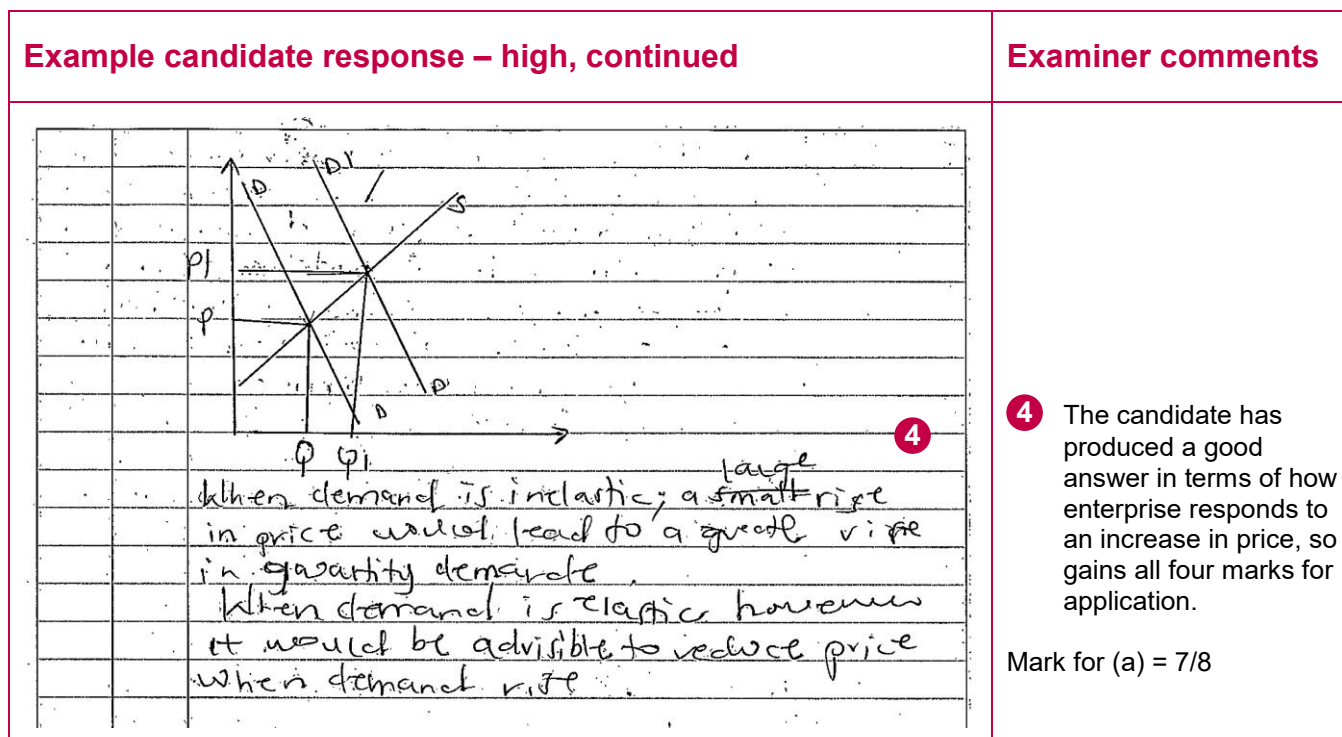 Example candidate response – high, continued
Examiner comments
D
D1
S
P1
P
D
D
Q
Q1
4
large
When demand is inelastic; a small rise
in price would lead to a greath rise
in quantity demande
When demand is elastic however
it would be advisible to reduce price
when demand rise
4 The candidate has
produced a good
answer in terms of how
enterprise responds to
an increase in price, so
gains all four marks for
application.
Mark for (a) = 7/8